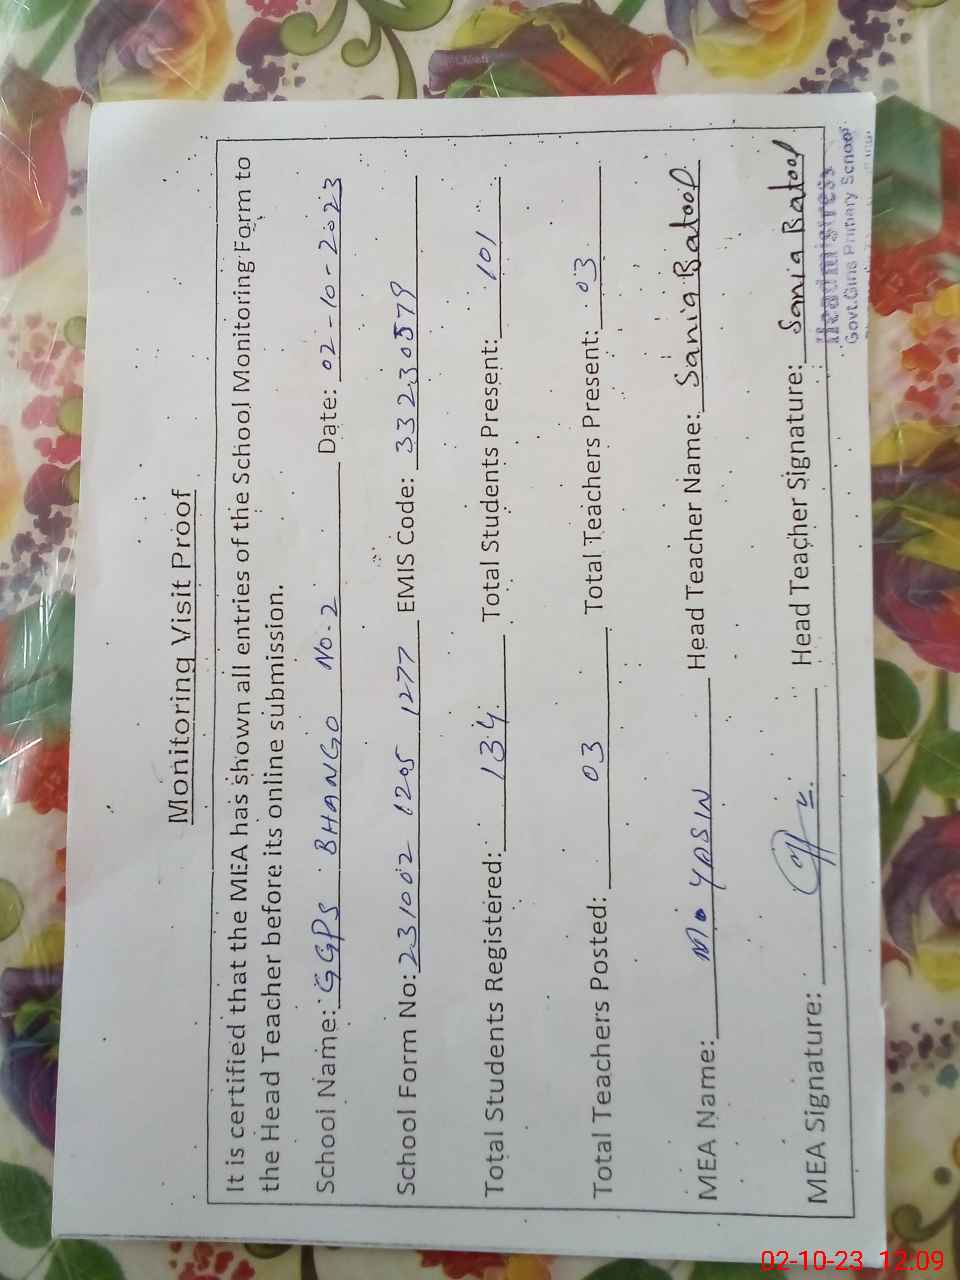 Monitoring Visit Proof
It is certified that the MEA has shown all entries of the School Monitoring Form to
the Head Teacher before its online submission.
School Name: GGPS BHANGO No-2 Date: 02-10-2023
School Form No: 231002 1205 1277 EMIS Code: 33230579
Total Students Registered: 134 Total Students Present: 101
Total Teachers Posted: 03 Total Teachers Present: 03
MEA Name: M. YASIN Head Teacher Name: Sania Batool
MEA Signature: Head Teacher Signature: Sania Batool
Headmistress
Govt.Girls Primary School
02-10-23 12:09